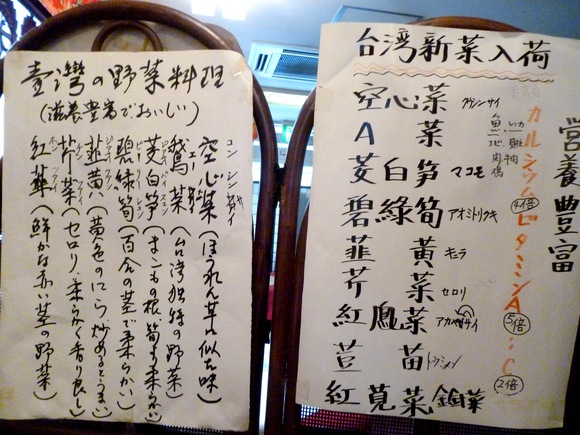 臺灣の野菜料理
(滋養豊富でおいしい)
空心菜(ほうれん草に似た味)
コンシンツァイ
鵞菜(台湾独特の野菜)
茭白筍(まこもの根、筍より柔らかい)
碧緑筍(百合の茎で柔らかい)
韮黄(黄色のにら、炒めるとうまい)
芹菜(セロリ、柔らかく香り良し)
紅華(鮮かな赤い茎の野菜)
台湾新菜入荷
空心菜 クウシンサイ
A菜
茭白笋 マコモ
碧綠筍 アオミドリクキ
韮黄 キニラ
芹菜 セロリ
紅鳳菜
荳苗 トウミョウ
紅莧菜
営養豊富
カルシウムビタミンA:C
4倍
5倍
2倍
魚 いか
肉 牛肉
鶏